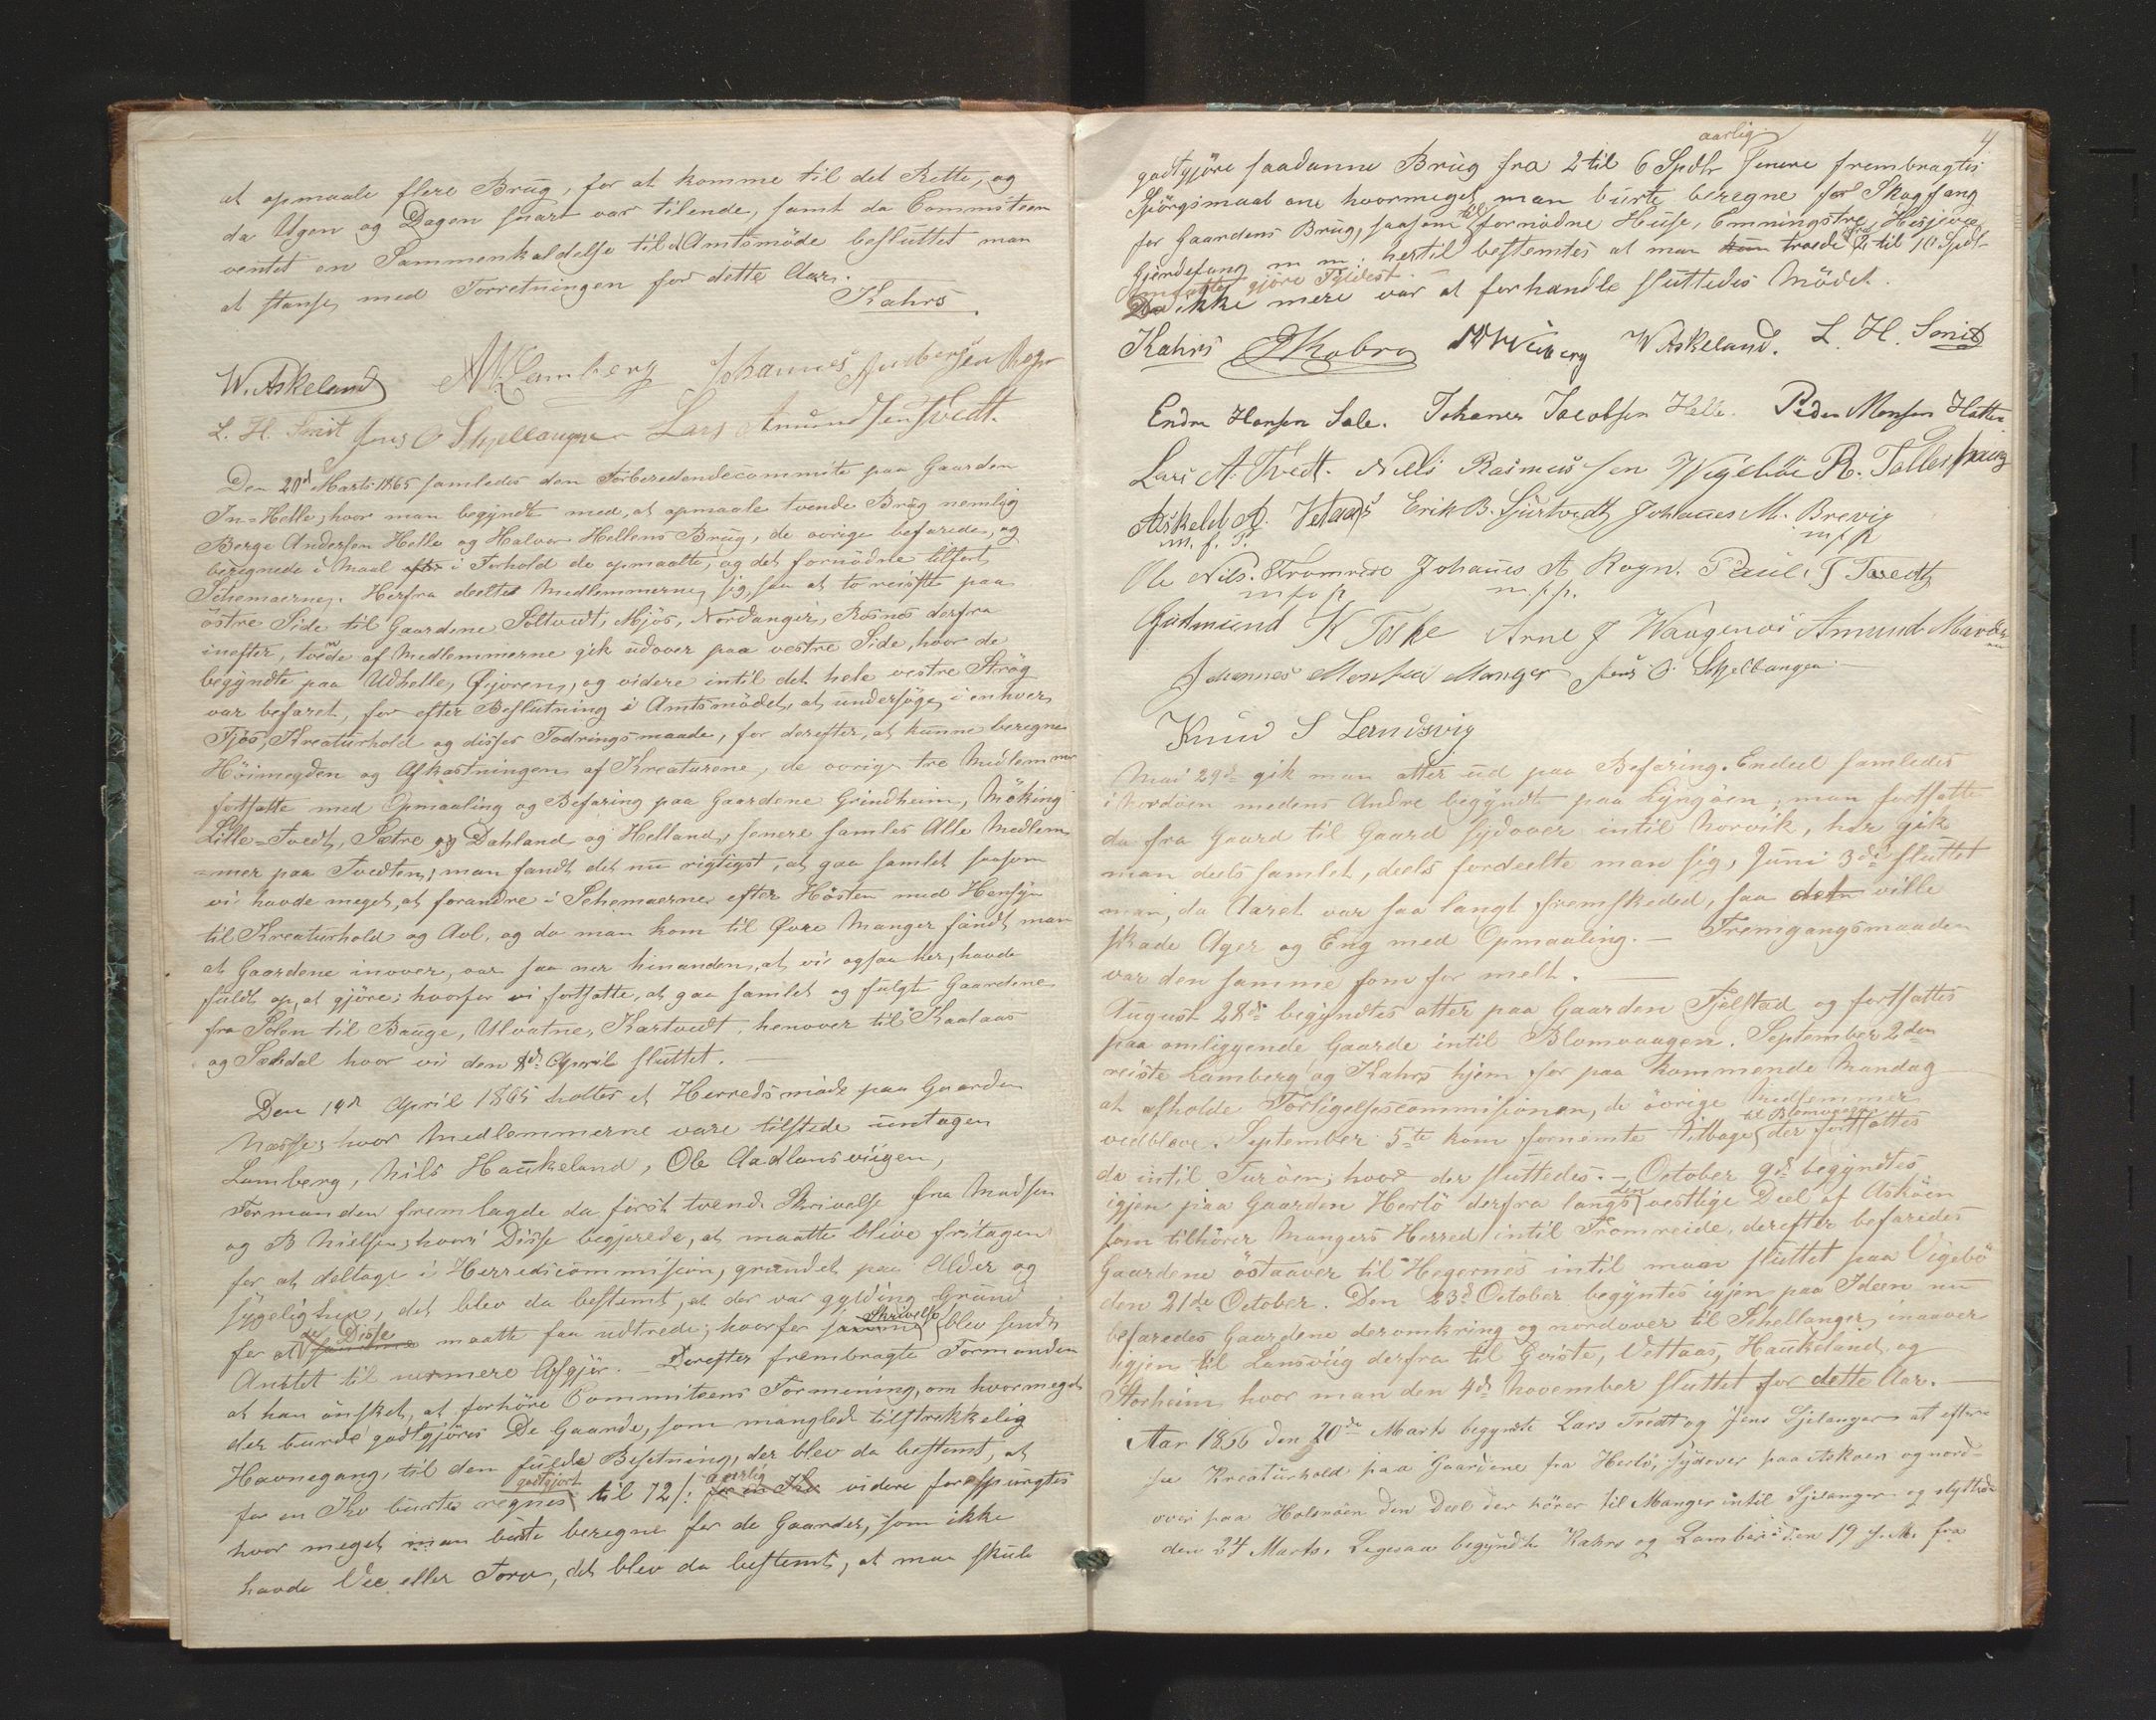 at opmaale flere Brug, for at komme til det Rette, og
da Ugen og Dagen snart var tilende, samt da Commiteen
ventet en Sammenkaldelse til Amtsmöde besluttet man
at stanse med Forretningen for dette Aar.
Kahrs
W. Askeland A Lamberg Johannes Andersen Rogn
L. H. Smit Jens O Skjellanger Lars Amundsen Tvedt.
Den 20d Marts 1865 samledes den Forberedendecommite paa Gaarden
In=Helle, hvor man begyndte med, at opmaale tvende Brug nemlig
Berge Andersen Helle og Halvor Hellens Brug, de övrige befarede, og
beregnede i Maal efter i Forhold de opmaalte, og det fornödne tilfört
Schemaerne. Herfra deeltes Medlemmerne sig, saa at to reiste paa
östre Side til Gaardene Soltvedt, Mjös, Nordanger, Rosnes derfra
inefter, tvende af Medlemmerne gik udover paa vestre Side, hvor de
begyndte paa Udhelle, Öijoren, og videre intil det hele vestre Strög
var befaret, for efter Beslutning i Amtsmödet, at undersöge i enhver
Fjös, Kreaturhold og disses Fodringsmaade, for derefter, at kunne beregne
Höimegden og Afkastningen af Kreaturene, de ovrige tre Midlemmer
fortsatte med Opmaaling og Befaring paa Gaardene Grindheim, Möking
Lille=Tvedt, Sætre og Dahland og Helland, senere samles Alle Medlem
=mer paa Tvedten; man fandt det nu rigtigst, at gaa samlet saasom
vi havde meget, at forandre i Schemaerne efter Hösten med Hensyn
til Kreaturhold og Avl, og da man kom til Övre Manger fandt man
at Gaardene inover, var saa ner hinanden, at vi ogsaa her, havde
fuldt op, at gjöre; hvorfor vi fortsatte, at gaa samlet og fulgte Gaardene
fra Solen til Bauge, Ulvatne, Kartvedt, henover til Kaalaas
og Sæhdal hvor vi den 8d April sluttet.
Den 19d April 1865 holtes et Herredsmöde paa Gaarden
Næsse, hvor Medlemmerne vare tilstede untagen
Lamberg, Nils Haukeland, Ole Aadlansviigen,
Formanden fremlagde da först tvende Skrivelse fra Madsen
og B Nielsen, hvori Disse begjerede, at maatte blive fritagen
for at deltage i Herredscommission, grundet paa Alder og
sygelighen, det blev da bestemt, at der var gylding Grund
for at de Disse maatte faa udtrede; hvorfor samme Skrivelse blev sendt
Amtet til nermere Afgjör. Derefter frembragte Formanden
at han önsket, at forhöre Commiteens Formening, om hvormeget
der burde godtgjöres De Gaarde, som manglede tilstrekkelig
Havnegang, til den fulde Besetning, der blev da bestemt, at
for en Ko burte regnes godtgjort til 72 /: aarlig for en Ko videre forespurgtes
hvor meget man burte beregne for de Gaarder, som ikke
havde Vee eller Torv, det blev da bestemt, at man skule
4
aarlig
godtgjöre saadanne Brug fra 2 til 6 Spdlr senere frembragtes
Spörgsmaal om hvormeget man burte beregne for Skogfang
for Gaardens Brug, saasom til fornödne Huse, Emningstre, Hesjeved
Gjerdefang m m; hertil bestemtes at man kun troede fra 2 til 10 Spdl
gjöre Fyldest.
Da ikke mere var at forhandle sluttedes Mödet.
Kahrs W Askeland. L. H. Smit
Endre Hansen Sale. Johanes Jacobsen Helle. Peder Monsen Hatten
Lars A. Tvedt. Nills Rasmussen Wigeböe R.
Askeld A. Vetaas Erik B. Sjurtvedt Johanes M. Brevig
m. f. P. m f p
Ole Nils. Fromreide Johanes A Rogn. Paul J Tvedt
m f p m. f. p.
Gudmund K Toske Arne J Waugenoi Amund
Johannes Monsen Manger Jens O. Skjelanger
Knud S Landsvig
Mai 29de gik man atter ud paa Befaring. Endeel samledes
i Nordöen medens Andre begyndte paa Lyngöen; man fortsatte
da fra Gaard til Gaard sydover intil Norvik, her gik
man deels samlet, deels fordeelte man sig, Juni 3die sluttet
man, da Aaret var saa langt fremskeded, saa det ville
skade Ager og Eng med Opmaaling. — Fremgangsmaaden
var den samme som for melt.
August 28de begyndtes atter paa Gaarden Fjelstad og fortsattes
paa omliggende Gaarde intil Blomvaagen. September 2den
reiste Lamberg og Kahrs hjem for paa kommende Mandag
at afholde Forligelsescommisionen, de övrige Medlemmer
vedblove. September 5te kom fornemte tilbage til Blomvaagen der fortsattes
da intil Turöen, hvor der sluttedes. — October 9d begyndtes
igjen paa Gaarden Herlö derfra langs den vestlige Deel af Asköen
som tilhörer Mangers Herred intil Fromreide, derefter befaredes
Gaardene östaaver til Hegernes intil man sluttet paa Vigebö
den 21de October. Den 23d October begyntes igjen paa Ideen nu
befaredes Gaardene deromkring og nordover til Schellanger, inaaver
igjen til Lansviig derfra til Qviste, Vettaas, Haukeland, og
Storheim hvor man den 4de November sluttet for dette Aar.
Aar 1866 den 20de Marts begyndte Lars Tvedt og Jens Sjelanger at efter=
se Kreaturhold paa Gaardene fra Herlö, sydover paa Askøen og nord=
over paa Holsenöen den Deel der hörer til Manger intil Sjelanger og slyttede
den 24 Marts. Legesaa begyndte Kahrs og Lamberg den 19 s. M. fra